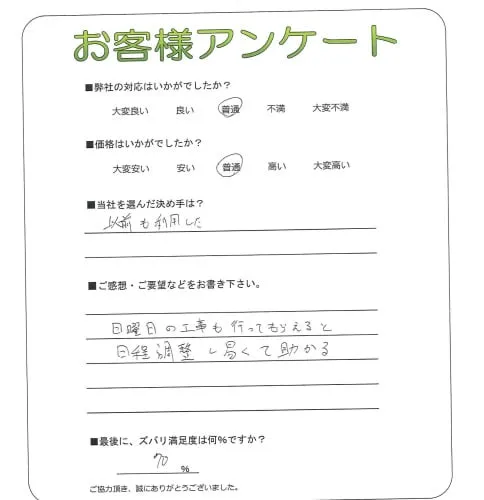 お客様アンケート
■弊社の対応はいかがでしたか？
大変良い 良い 普通 不満 大変不満
■価格はいかがでしたか？
大変安い 安い 普通 高い 大変高い
■当社を選んだ決め手は？
以前も利用した
■ご感想・ご要望などをお書き下さい。
日曜日の工事も行ってもらえると
日程調整し易くて助かる
■最後に、ズバリ満足度は何%ですか？
70 %
ご協力頂き、誠にありがとうございました。